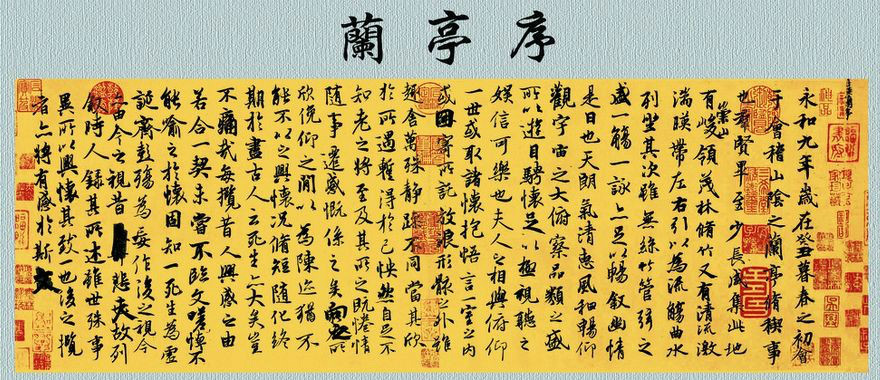 蘭亭序
永和九年歲在癸丑暮春之初會
于會稽山陰之蘭亭脩稧事
也群賢畢至少長咸集此地
有崇山峻領茂林脩竹又有清流激
湍暎帶左右引以為流觴曲水
列坐其次雖無絲竹管弦之
盛一觴一詠亦足以暢敘幽情
是日也天朗氣清惠風和暢仰
觀宇宙之大俯察品類之盛
所以遊目騁懷足以極視聽之
娛信可樂也夫人之相與俯仰
一世或取諸懷抱悟言一室之內
或因寄所託放浪形骸之外雖
趣舍萬殊靜躁不同當其欣
於所遇暫得於己怏然自足不
知老之將至及其所之既惓情
隨事遷感慨係之矣向之所
欣俛仰之閒以為陳迹猶不
能不以之興懷況脩短隨化終
期於盡古人云死生亦大矣豈
不痛哉每攬昔人興感之由
若合一契未嘗不臨文嗟悼不
能喻之於懷固知一死生為虛
誕齊彭殤為妄作後之視今
亦由今之視昔悲夫故列
敘時人錄其所述雖世殊事
異所以興懷其致一也後之攬
者亦將有感於斯文